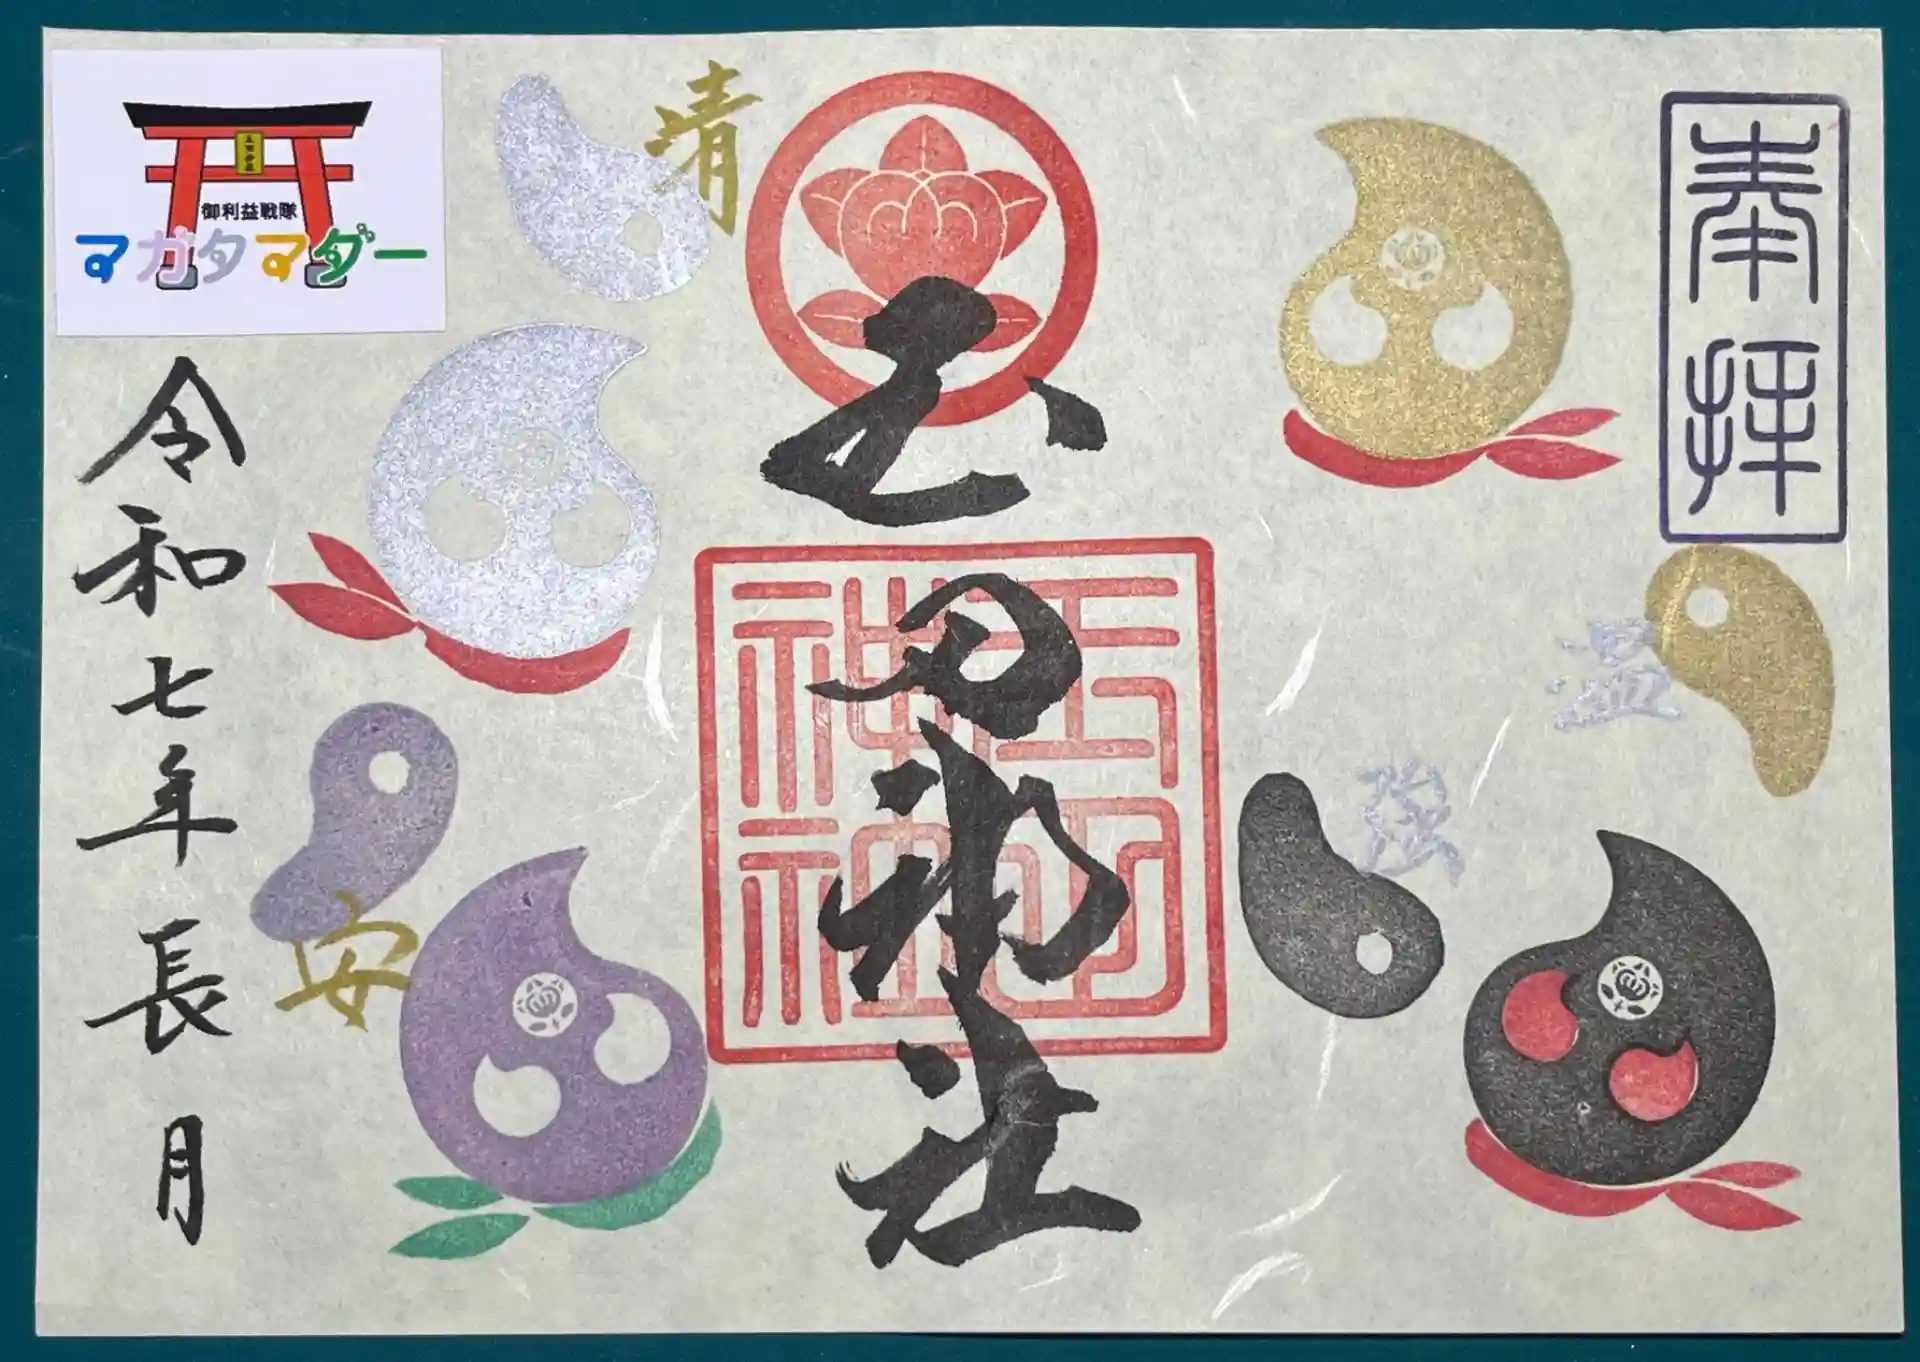 奉拝
強
玉田神社
玉田
神社
清
安
御利益戦隊
マガタマダー
令和七年長月